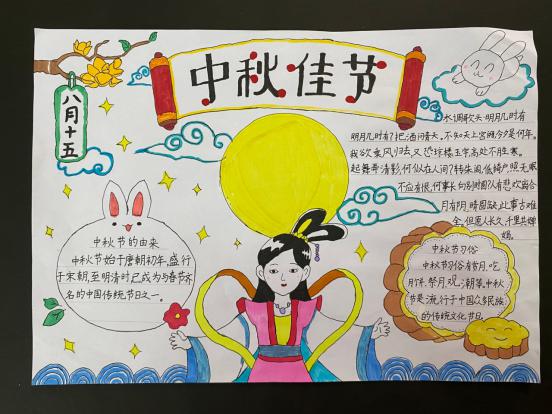 中秋佳节
八月十五
水调歌头·明月几时有
明月几时有?把酒问青天。不知天上宫阙今夕是何年。
我欲乘风归去,又恐琼楼玉宇,高处不胜寒。
起舞弄清影,何似在人间?转朱阁,低绮户,照无眠
不应有恨,何事长向别时圆?人有悲欢离合
月有阴晴圆缺,此事古难
全。但愿人长久,千里共婵
娟。
中秋节的由来
中秋节始于唐朝初年,盛行
于宋朝,至明清时已成为与春节齐
名的中国传统节日之一。
中秋节习俗
中秋节习俗有赏月、吃
月饼、祭月、观潮等。中秋
节是流行于中国众多民族
的传统文化节日。